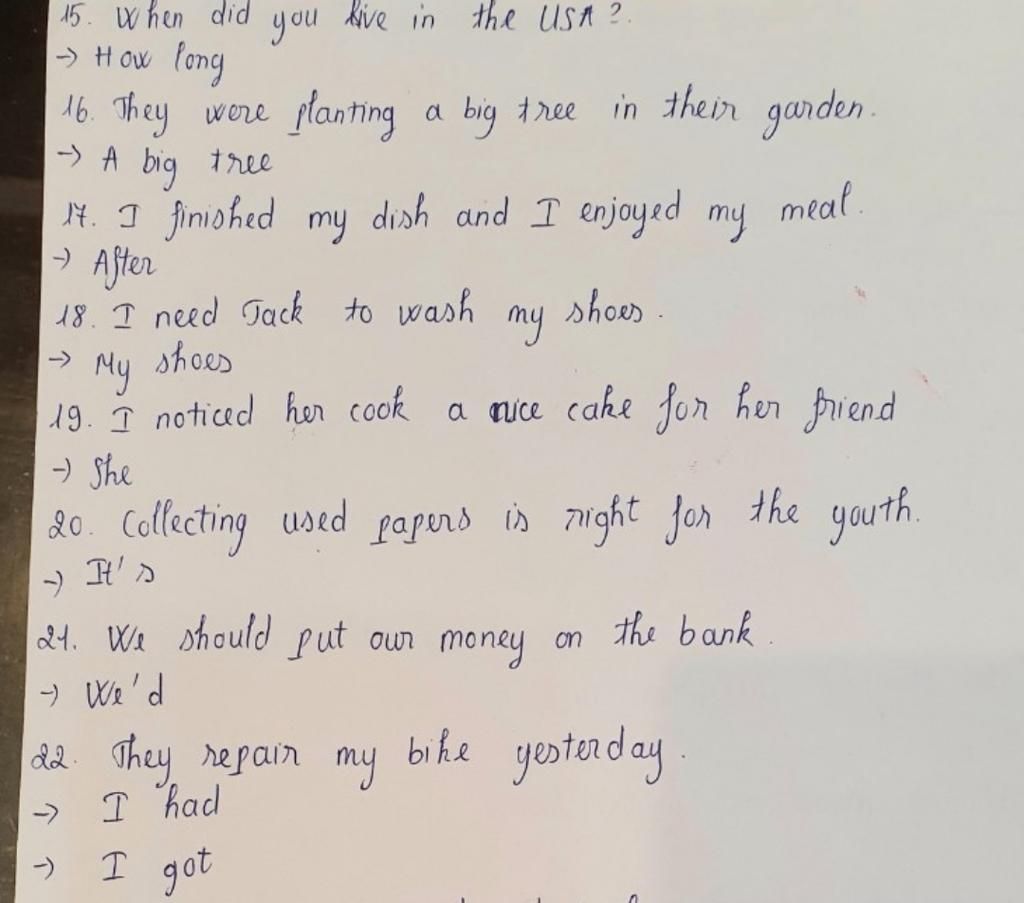 15. When did you live in the USA?.
→ How long
16. They were planting a big tree in their garden.
→ A big tree
17. I finished my dish and I enjoyed my meal.
→ After
18. I need Jack to wash my shoes.
→ My shoes
19. I noticed her cook a nice cake for her friend
→ She
20. Collecting used papers is right for the youth.
→ It's
21. We should put our money on the bank.
→ We'd
22. They repair my bike yesterday.
→ I had
→ I got